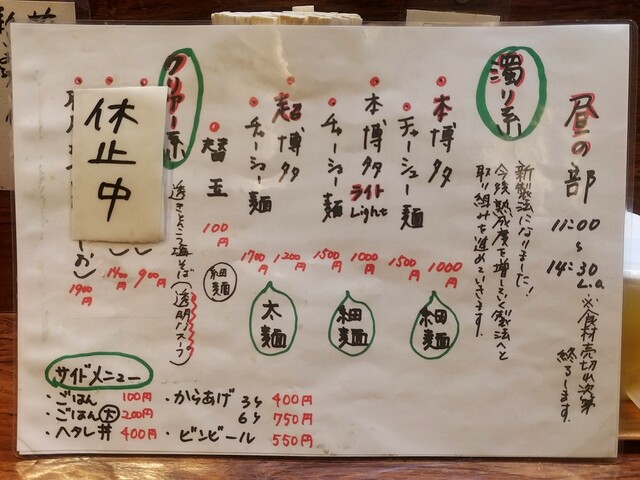 昼の部
11:00
〜
14:30
L.o.
※食材売切れ次第
終了します。
濁り系
新製法になりました!
今後熟成度を増していく製法へと
取り組みを進めていきます。
・本博タ 1000円
・チャーシュー麺 1500円
細麺
・本博タ ライト Light 1000円
・チャーシュー麺 1500円
細麺
・超博タ 1200円
・チャーシュー麺 1700円
太麺
・替玉 100円
細麺
クリアー系
透きとおる塩そば(透明なスープ)
休止中
900円
1400円
1900円
サイドメニュー
・ごはん 100円
・ごはん大 200円
・ヘタレ丼 400円
・からあげ 3ケ 400円
6ケ 750円
・ビンビール 550円